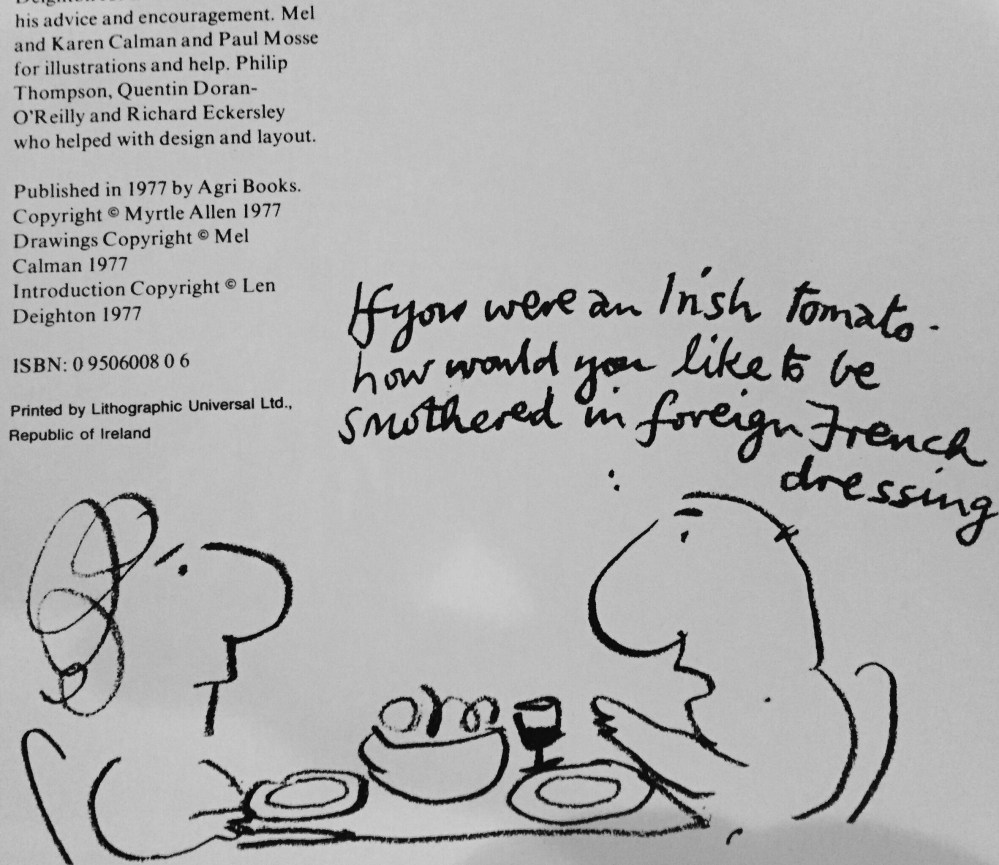 his advice and encouragement. Mel
and Karen Calman and Paul Mosse
for illustrations and help. Philip
Thompson, Quentin Doran-
O'Reilly and Richard Eckersley
who helped with design and layout.
Published in 1977 by Agri Books.
Copyright © Myrtle Allen 1977
Drawings Copyright © Mel
Calman 1977
Introduction Copyright © Len
Deighton 1977
ISBN: 0 9506008 0 6
Printed by Lithographic Universal Ltd.,
Republic of Ireland
If you were an Irish tomato.
how would you like to be
smothered in foreign French
dressing